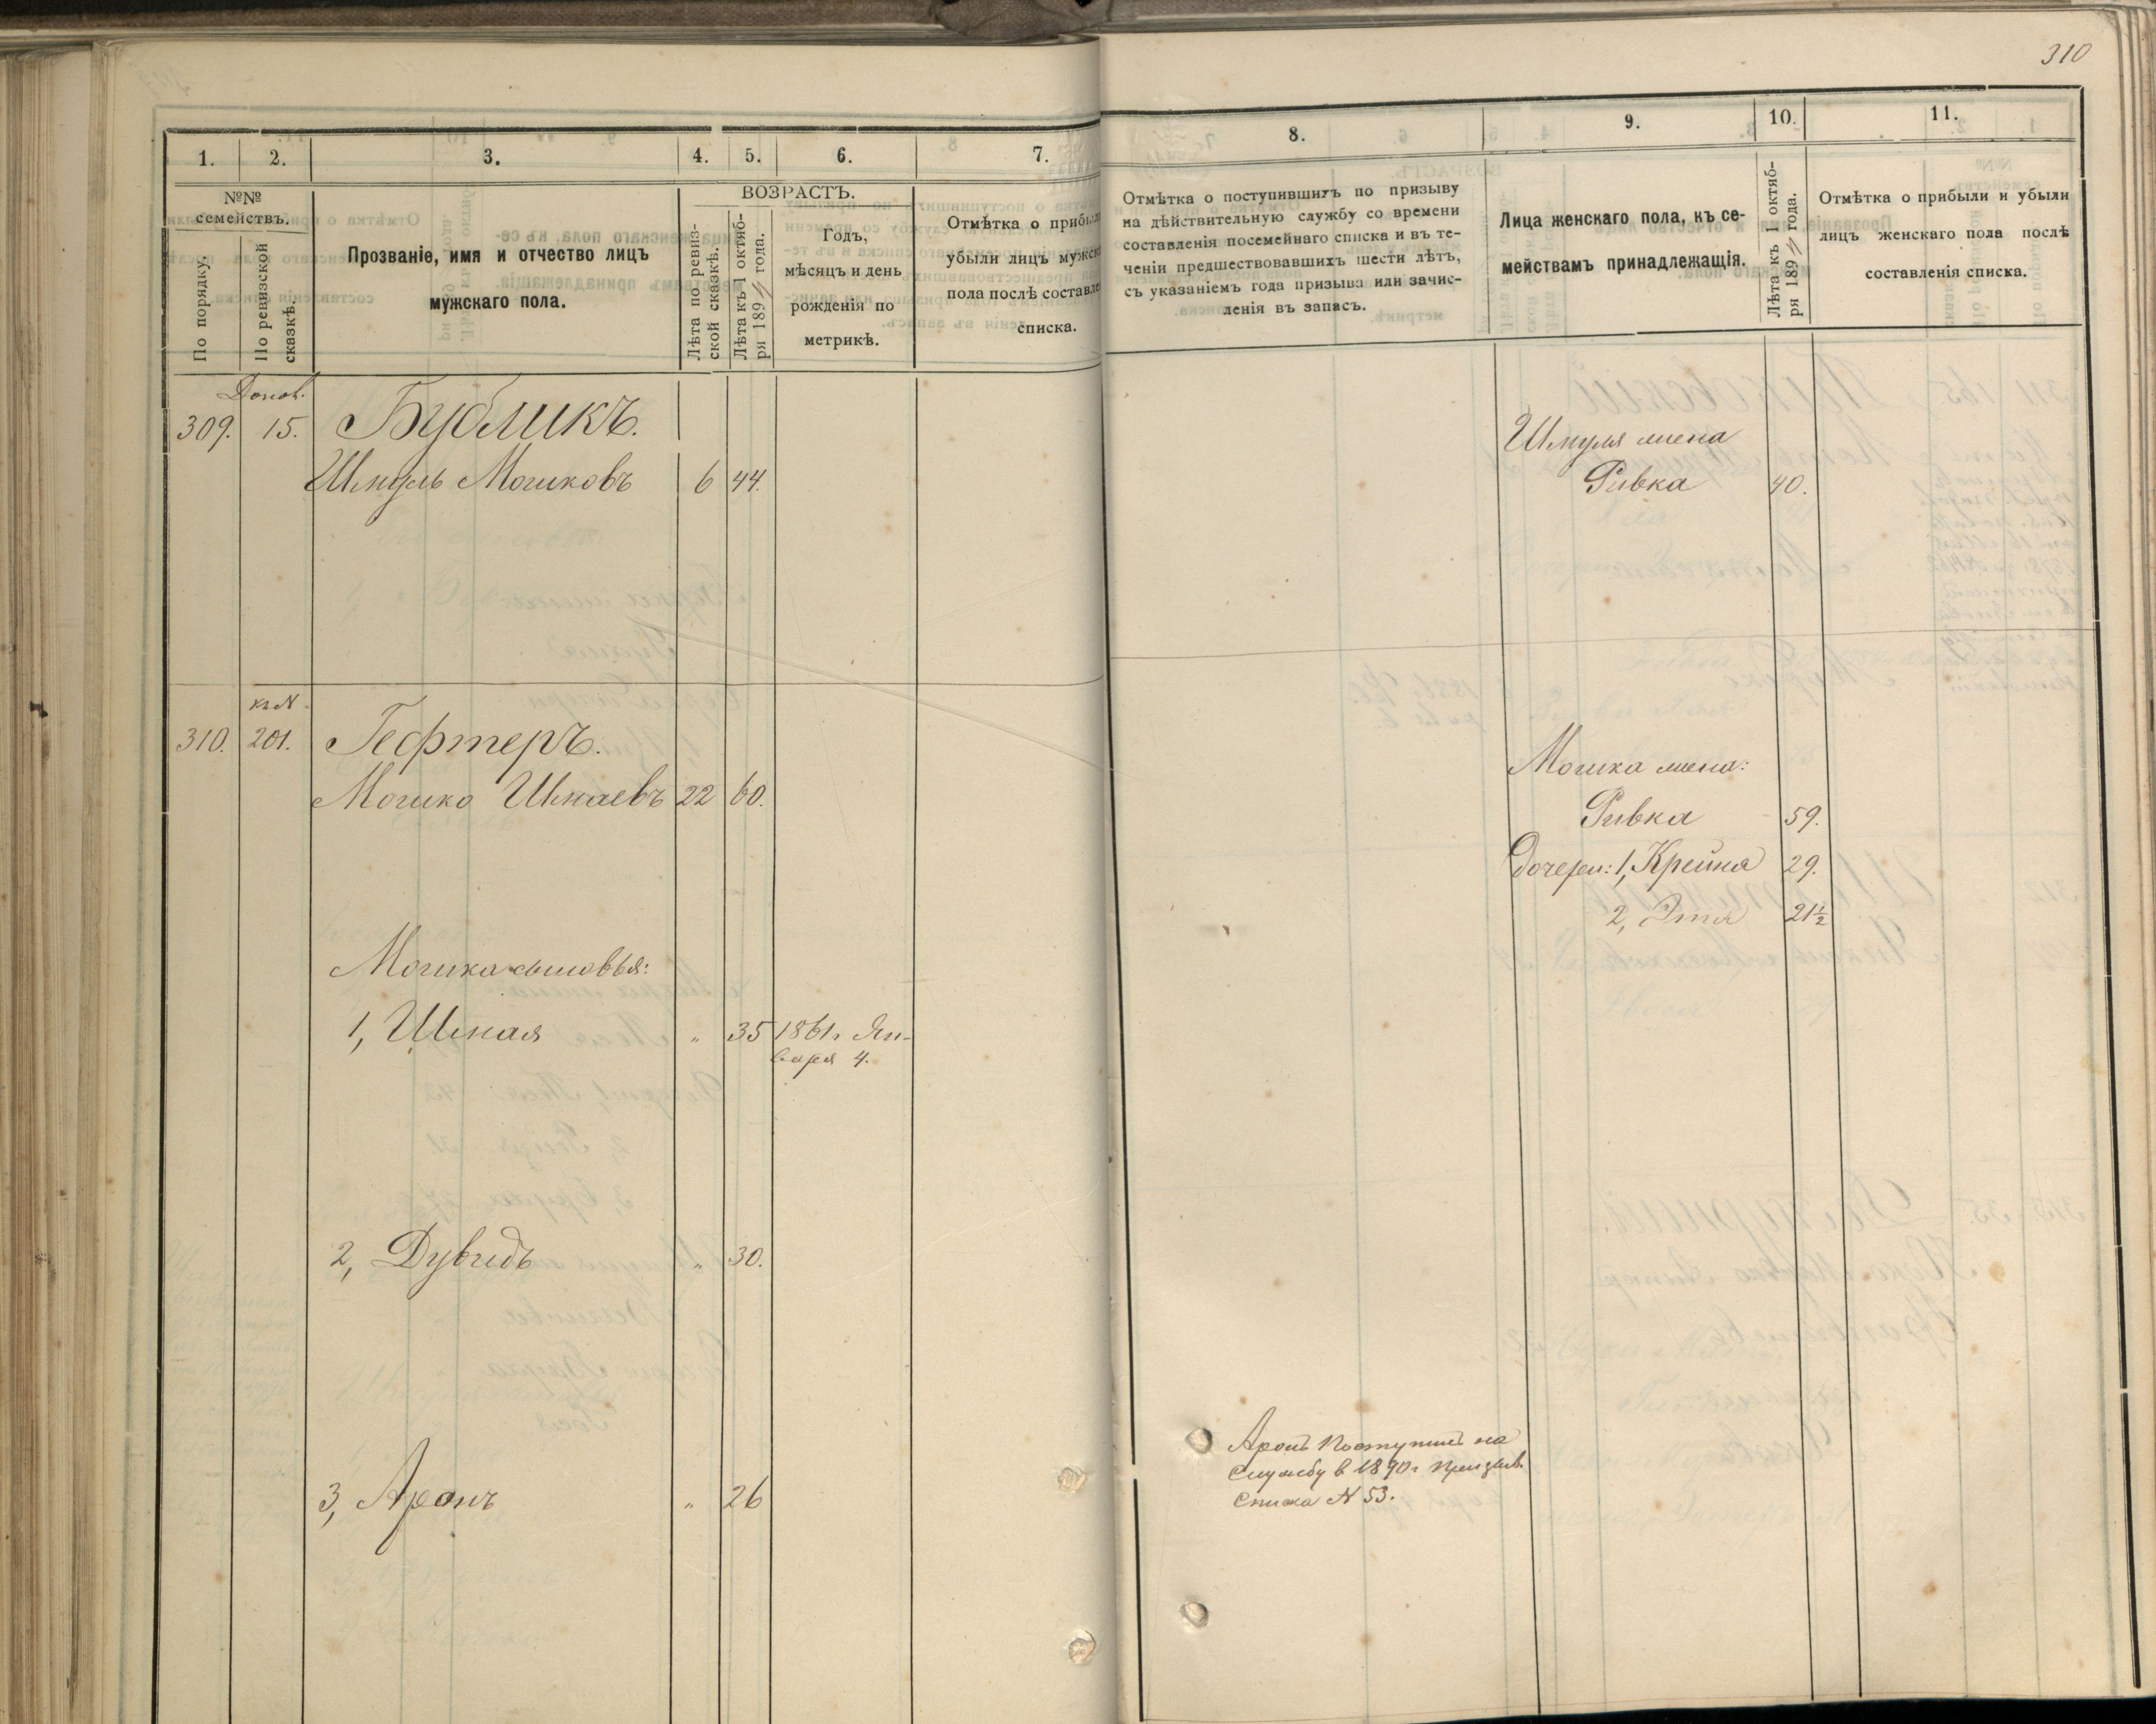 310
1.
2.
3.
4.
5.
6.
7.
8.
9.
10.
11.
№№
семействъ.
По порядку.
По ревизской
сказкѣ.
Прозваніе, имя и отчество лицъ
мужскаго пола.
ВОЗРАСТЪ.
Лѣта по ревиз-
ской сказкѣ.
Лѣта къ 1 октяб-
ря 189 года.
Годъ,
мѣсяцъ и день
рожденія по
метрикѣ.
Отмѣтка о прибыли
убыли лицъ мужск
пола послѣ составле
списка.
Отмѣтка о поступившихъ по призыву
на дѣйствительную службу со времени
составленія посемейнаго списка и въ те-
ченіи предшествовавшихъ шести лѣтъ,
съ указаніемъ года призыва или зачис-
ленія въ запасъ.
Лица женскаго пола, къ се-
мействамъ принадлежащія.
Лѣта къ 1 октяб-
ря 189 года.
Отмѣтка о прибыли и убыли
лицъ женскаго пола послѣ
составленія списка.
Допов.
309. 15. Бубликъ.
Шмуль Мошковъ 6 44.
Шмуля жена
Ривка 40.
къ N
310. 201. Гефтеръ.
Мошко Шмаевъ 22 60.
Мошка жена:
Ривка 59.
Дочери: 1, Крейна 29.
2, Этя 21½
Мошка сыновья:
1, Шмая " 35 1861г Ян-
варя 4.
2, Дувидъ " 30.
3, Аронъ " 26
Аронъ поступилъ на
службу в 1890г призыв.
списка N 53.